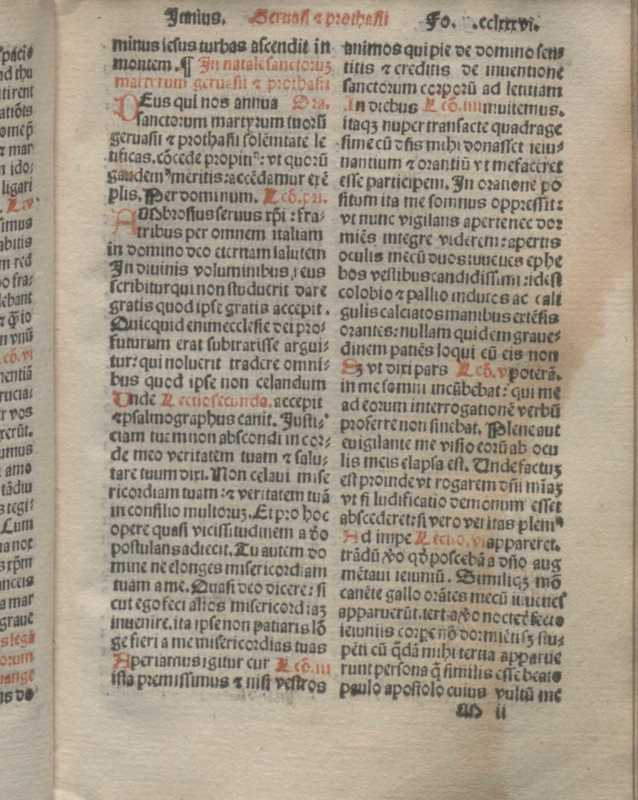 Junius. Geruasij ⁊ prothasij Fo. .cclxxxvi.
minus iesus turbas ascendit in
montem. ¶ In natale sanctoruʒ
martyrum geruasii ⁊ prothasii
DEus qui nos annua Ora.
sanctorum martyrum tuorū
geruasii ⁊ prothasii solēnitate le
tificas. cōcede propitiꝰ: vt quorū
gaudemꝰ meritis: accēdamur exē
plis. Per dominum. Lectō. pri.
AMbrosius seruus xp̄i: fra-
tribus per omnem italiam
in domino deo eternam salutem
In diuinis voluminibus, reus
scribitur qui non studuerit dare
gratis quod ipse gratis accepit.
Quicquid enim ecclesie dei pro-
futurum erat subtraxisse argui-
tur: qui noluerit tradere omni-
bus quod ipse non celandum
Unde Lectio secunda. accepit
⁊ psalmographus canit. Justi-
ciam tuam non abscondi in cor-
de meo veritatem tuam ⁊ salu-
tare tuum dixi. Non celaui mise
ricordiam tuam: ⁊ veritatem tuā
in consilio multorum. Et pro hoc
opere quasi vicissitudinem a deo
postulans adiecit. Tu autem do
mine ne elonges misericordiam
tuam a me. Quasi deo dicere: si
cut ego feci alios misericordiaʒ
inuenire. ita ipse non patiaris lō
ge fieri a me misericordias tuas
Aperiamus igitur cur Lectō. iii
ista premissimus ⁊ nisi vestros
animos qui pie de domino sens
titis ⁊ creditis de inuentione
sanctorum corporū ad letitiam
In diebus Lectō. iiii inuitemus.
itaqʒ nuper transacte quadrage
sime cū dn̄s mihi donasset ieiu-
nantium ⁊ orantiū vt me faceret
esse participem. In oratione po
situm ita me somnus oppressit:
vt nunc vigilans aperte nec dor
miēs integre viderem: apertis
oculis mecū duos iuuenes ephe
bos vestibus candidissimis: idest
colobio ⁊ pallio indutos ac cali
gulis calciatos manibus extēsis
orantes: nullam quidem graue-
dinem patiēs loqui cū eis non
Sʒ vt dixi pars Lectō. v poterā.
in me somni incūbebat: qui me
ad eorum interrogationē verbū
proferre non sinebat. Plene aut
euigilante me visio eorū ab ocu
lis meis elapsa est. Unde factuʒ
est proinde vt rogarem dn̄i mīaʒ
vt si ludificatio demonum esset
abscederet: si vero veritas pleniꝰ
Ad impe Lectio. vi appareret.
trādū vero quod poscebā a dn̄o aug
mētaui ieiuniū. Similiqʒ mō
canēte gallo orātes mecū iuuenes
apparuerūt. tertia vero nocte
ieiuniis non dormiētiʒ stu-
peti cū qdā mihi tertia apparue
runt persona que similis esse beato
paulo apostolo cuius vultū me
M ii